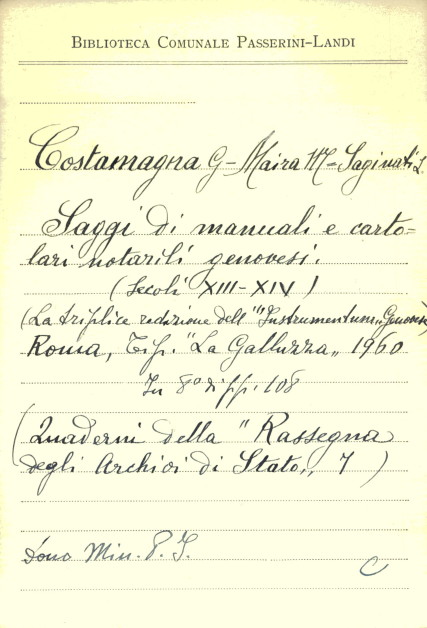 BIBLIOTECA COMUNALE PASSERINI-LANDI
Costamagna G - Maira M - Saginati L.
Saggi di manuali e carto=
lari notarili genovesi.
(Secoli XIII-XIV)
(La triplice redazione dell'"Instrumentum„ Genovese)
Roma, Tip. "La Galluzza„ 1960
In 8° di pp. 108
(Quaderni della "Rassegna
degli Archivi di Stato„, 7)
Dono Min. P. I.
C